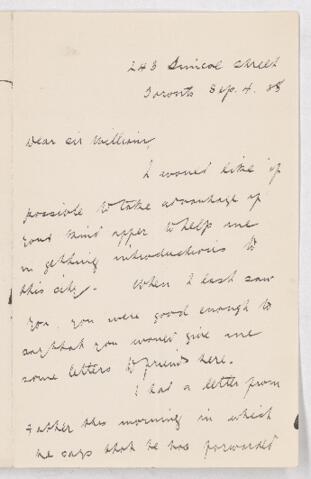 243 Simcoe Street
Toronto Sep. 4. 88
Dear Sir William,
I would like if
possible to take advantage of
your kind offer to help me
in getting introductions to
this city. When I last saw
you, you were good enough to
say that you would give me
some letters to friends here.
I had a letter from
Father this morning in which
he says that he has forwarded